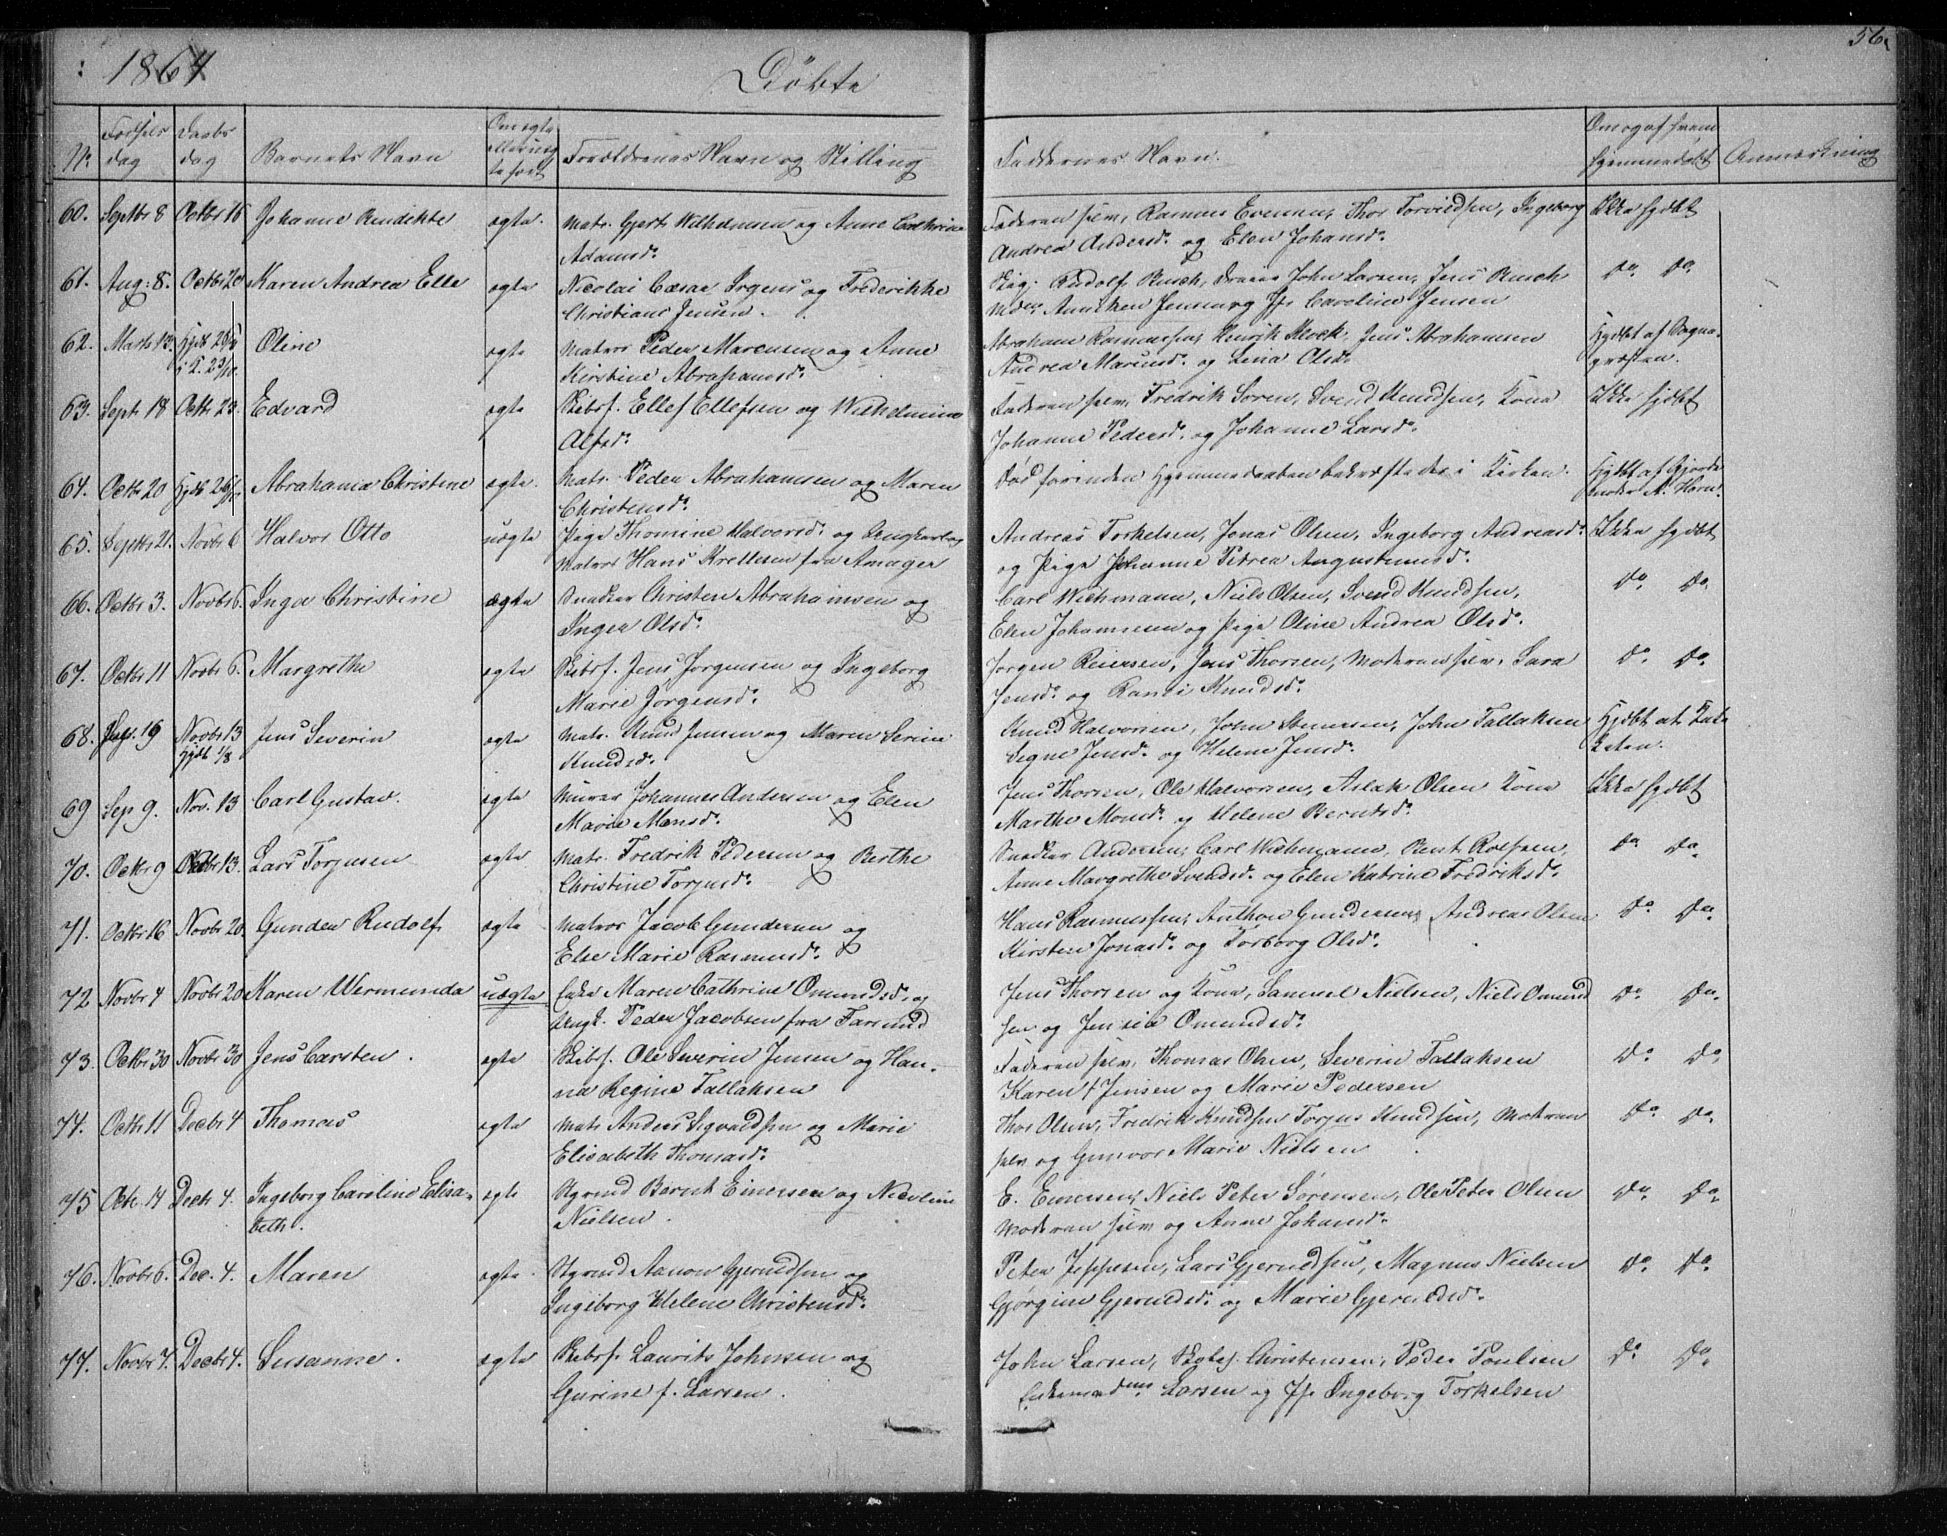 1864
Döbte
56.
No.
Födsels dag
Daabs dag
Barnets Navn
Om ægte eller uægte födt
Forældrenes Navn og Stilling
Faddernes Navn.
Om og af hvem hjemmedöbt
Anmærkning
60. Septbr 8 Octbr 16 Johanne Bendikte ægte. Matr. Gjert Wilhelmsen og Anne Cathrine Faderen selv, Rasmus Evensen, Thor Torvildsen, Ingeborg Ikke hjdbt
Adamsd. Andrea Andersd. og Elen Johansd.
61. Aug. 8. Octbr 20 Karen Andrea Elle ægte Nicolai Cæsar Irgens og Frederikke Rudolf Busch, John Larsen, Jens Busch Do. Do.
Christiane Jensen. Anniken Jensen og Jfr Caroline Jensen
62. Marts 13. Hjdt i K. 23/10. Oline ægte Matros Peder Marcusen og Anne Abraham Rasmussen, Henrik Klock, Jens Abrahamsen Hjdbt af Sogne-
Kirstine Abrahamsd. Andrea Marcusd. og Lena Olsd. præsten.
63. Sept. 18 Octbr 23. Edvard ægte Skibsf. Ellef Ellefsen og Wilhelmine Faderen selv, Fredrik Sören, Svend Knudsen, Kona Ikke hjdbt
Alfsd. Johanne Pedersd. og Johanne Larsd.
64. Octbr 20 Hjdt Abrahama Christine ægte. Matr. Peder Abrahamsen og Maren Död forinden Hjemmedaaben bekræftedes i Kirken. Hjdbt. af Gjorde-
Christensd. moder A. Horn.
65. Septbr 21. Novbr 6 Halvor Otto uægte Pige Thomine Halvorsd. og Ungkarl Andreas Torkelsen, Jonas Olsen, Ingeborg Andreasd. Ikke hjdbt
Matros Hans Krellesen fra Amager og Pige Johanne Pedrea Augustinusd.
66. Octbr 3. Novbr 6. Inger Christine ægte Snedker Christen Abrahamsen og Carl Wichmann, Niels Olsen, Svend Knudsen, Do. Do.
Inger Olsd. Elen Johannesen og Pige Oline Andrea Olsd.
67. Octbr 11 Novbr 6. Margrethe ægte Skibsf. Jens Jörgensen og Ingeborg Jörgen Reiersen, Jens Thorsen, Moderen selv, Sara Do. Do.
Marie Jörgensd. Jensd. og Randi Knudsd.
68. 19 Novbr 13 Jens Severin ægte Matr. Knud Jensen og Maren Serine Knud Halvorsen, John Stenersen, John Tallaksen Hjdbt
hjdbt 1/8 Knudsd. Signe Jensd. og Helene Jensd.
69 Sep 9. Nov. 13 Carl Gustav. ægte Murer Johannes Andersen og Elen Jens Thorsen, Ole Halvorsen, Aslak Olsen Kona Ikke hjdbt
Marie Monsd. Marthe Monsd. og Helene Berntsd.
70. Octbr 9 Novbr 13. Lars Torjusen ægte Matr. Fredrik Pedersen og Berthe Snedker Andersen, Carl Wichmann, Bent Rolfsen, Do Do.
Christine Torjusd. Anne Margrethe Svendsd. og Elen Katrine Fredriksd.
71. Octbr 16 Novbr 20. Gunder Rudolf. ægte Matros Jacob Gundersen og Hans Rasmussen, Anthon Gundersen, Andreas Olsen Do. Do.
Else Marie Rasmusd. Kirsten Jonasd. og Torborg Olsd.
72 Novbr 4 Novbr 20 Maren Wermunda uægte Enke Maren Cathrine Omundsd. og Jens Thorsen og Kona, Samuel Nielsen, Niels Omund Do. Do.
Ungk. Peder Jacobsen fra Farsund sen og Jensia Omundsd.
73. Octbr 30 Novbr 30 Jens Carsten. ægte Skibsf. Ole Severin Jensen og Han- Faderen selv, Thomas Olsen, Severin Tallaksen Do. Do.
na Regine Tallaksen Karen Jensen og Marie Pedersen
74. Octbr 11 Decbr 4 Thomas ægte Matr. Anders Sigvaldsen og Marie Thor Olsen, Fredrik Knudsen Torjus Knudsen, Moderen Do. Do.
Elisabeth Thomasd. selv og Gunvor Marie Nielsen
75 Octbr. 14 Decbr 4. Ingeborg Caroline Elisa- ægte Styrmd Bernt Einersen og Nicoline E. Einersen, Niels Peter Sörensen, Ole Peter Olsen Do. Do.
beth. Nielsen. Moderen selv og Anne Johansd.
76. Novbr 6. Dec. 4. Maren ægte. Styrmd Aanon Gjeruldsen og Peter Jeppesen, Lars Gjeruldsen, Magnus Nielsen Do. Do.
Ingeborg Helene Christensd. Gjörgine Gjeruldsd. og Marie Gjeruldsd.
77. Novbr 7. Decbr 4. Susanne. ægte Skibsf. Laurits Johnsen og John Larsen, Skibsf. Christensen, Peder Poulsen Do. Do.
Gurine f. Larsen. Larsen og Jfr Ingeborg Torkelsen